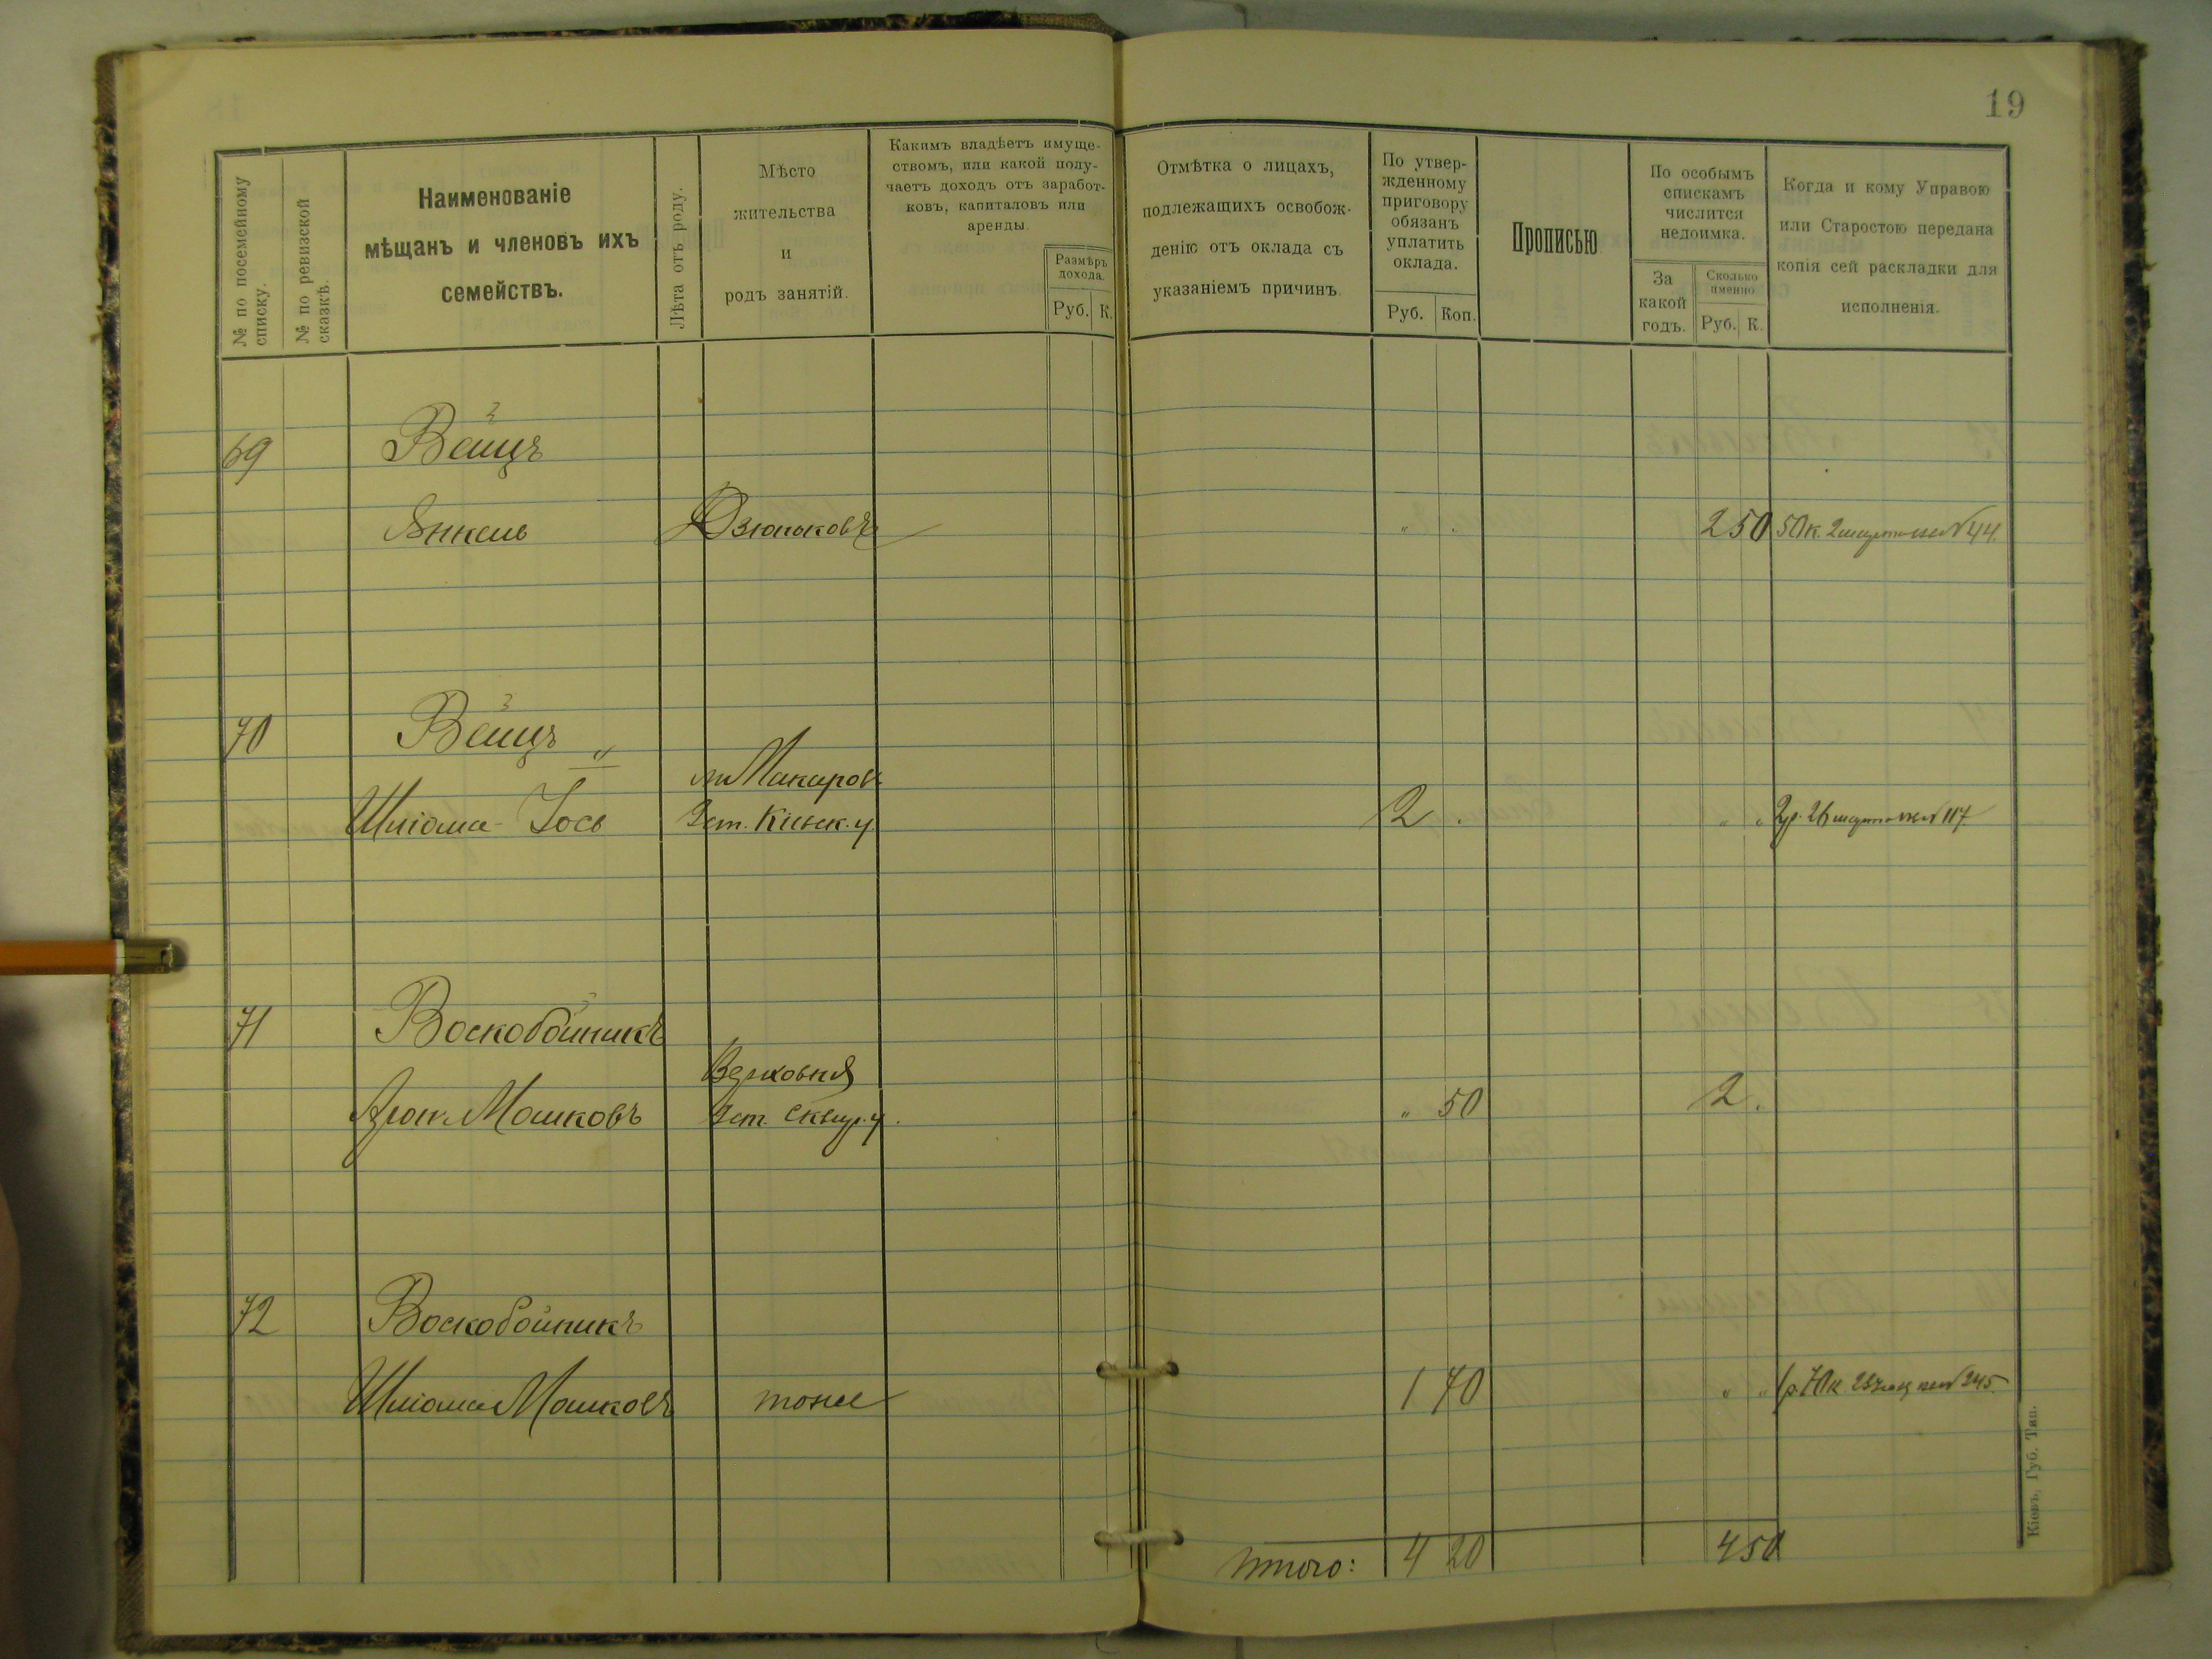 19
№ по посемейному списку.
№ по ревизской сказкѣ.
Наименованіе
мѣщанъ и членовъ ихъ
семействъ.
Лѣта отъ роду.
Мѣсто
жительства
и
родъ занятій.
Какимъ владѣетъ имуще-
ствомъ, или какой полу-
чаетъ доходъ отъ заработ-
ковъ, капиталовъ или
аренды.
Размѣръ
дохода.
Руб. К.
Отмѣтка о лицахъ,
подлежащихъ освобож-
денію отъ оклада съ
указаніемъ причинъ.
По утвер-
жденному
приговору
обязанъ
уплатить
оклада.
Руб. Коп.
Прописью
По особымъ
спискамъ
числится
недоимка.
За
какой
годъ.
Сколько
именно
Руб. К.
Когда и кому Управою
или Старостою передана
копія сей раскладки для
исполненія.
69 Вейцъ
Янкель Дзюньковъ „ . 2 50 50 к. 2 № 44.
70 Вейцъ „
м Макаров
Шліома-Іось Кіевск. у. 2 . „ „ 2 р. 26 № 117.
71 Воскобойникъ
Верховня
Арон Мошковъ Сквир. у. „ 50 2 .
72 Воскобойникъ
Шліома Мошковъ тоже 1 70 „ „ 1 р. 70 к № 245.
Итого: 4 20 4 50
Кіевъ, Губ. Тип.